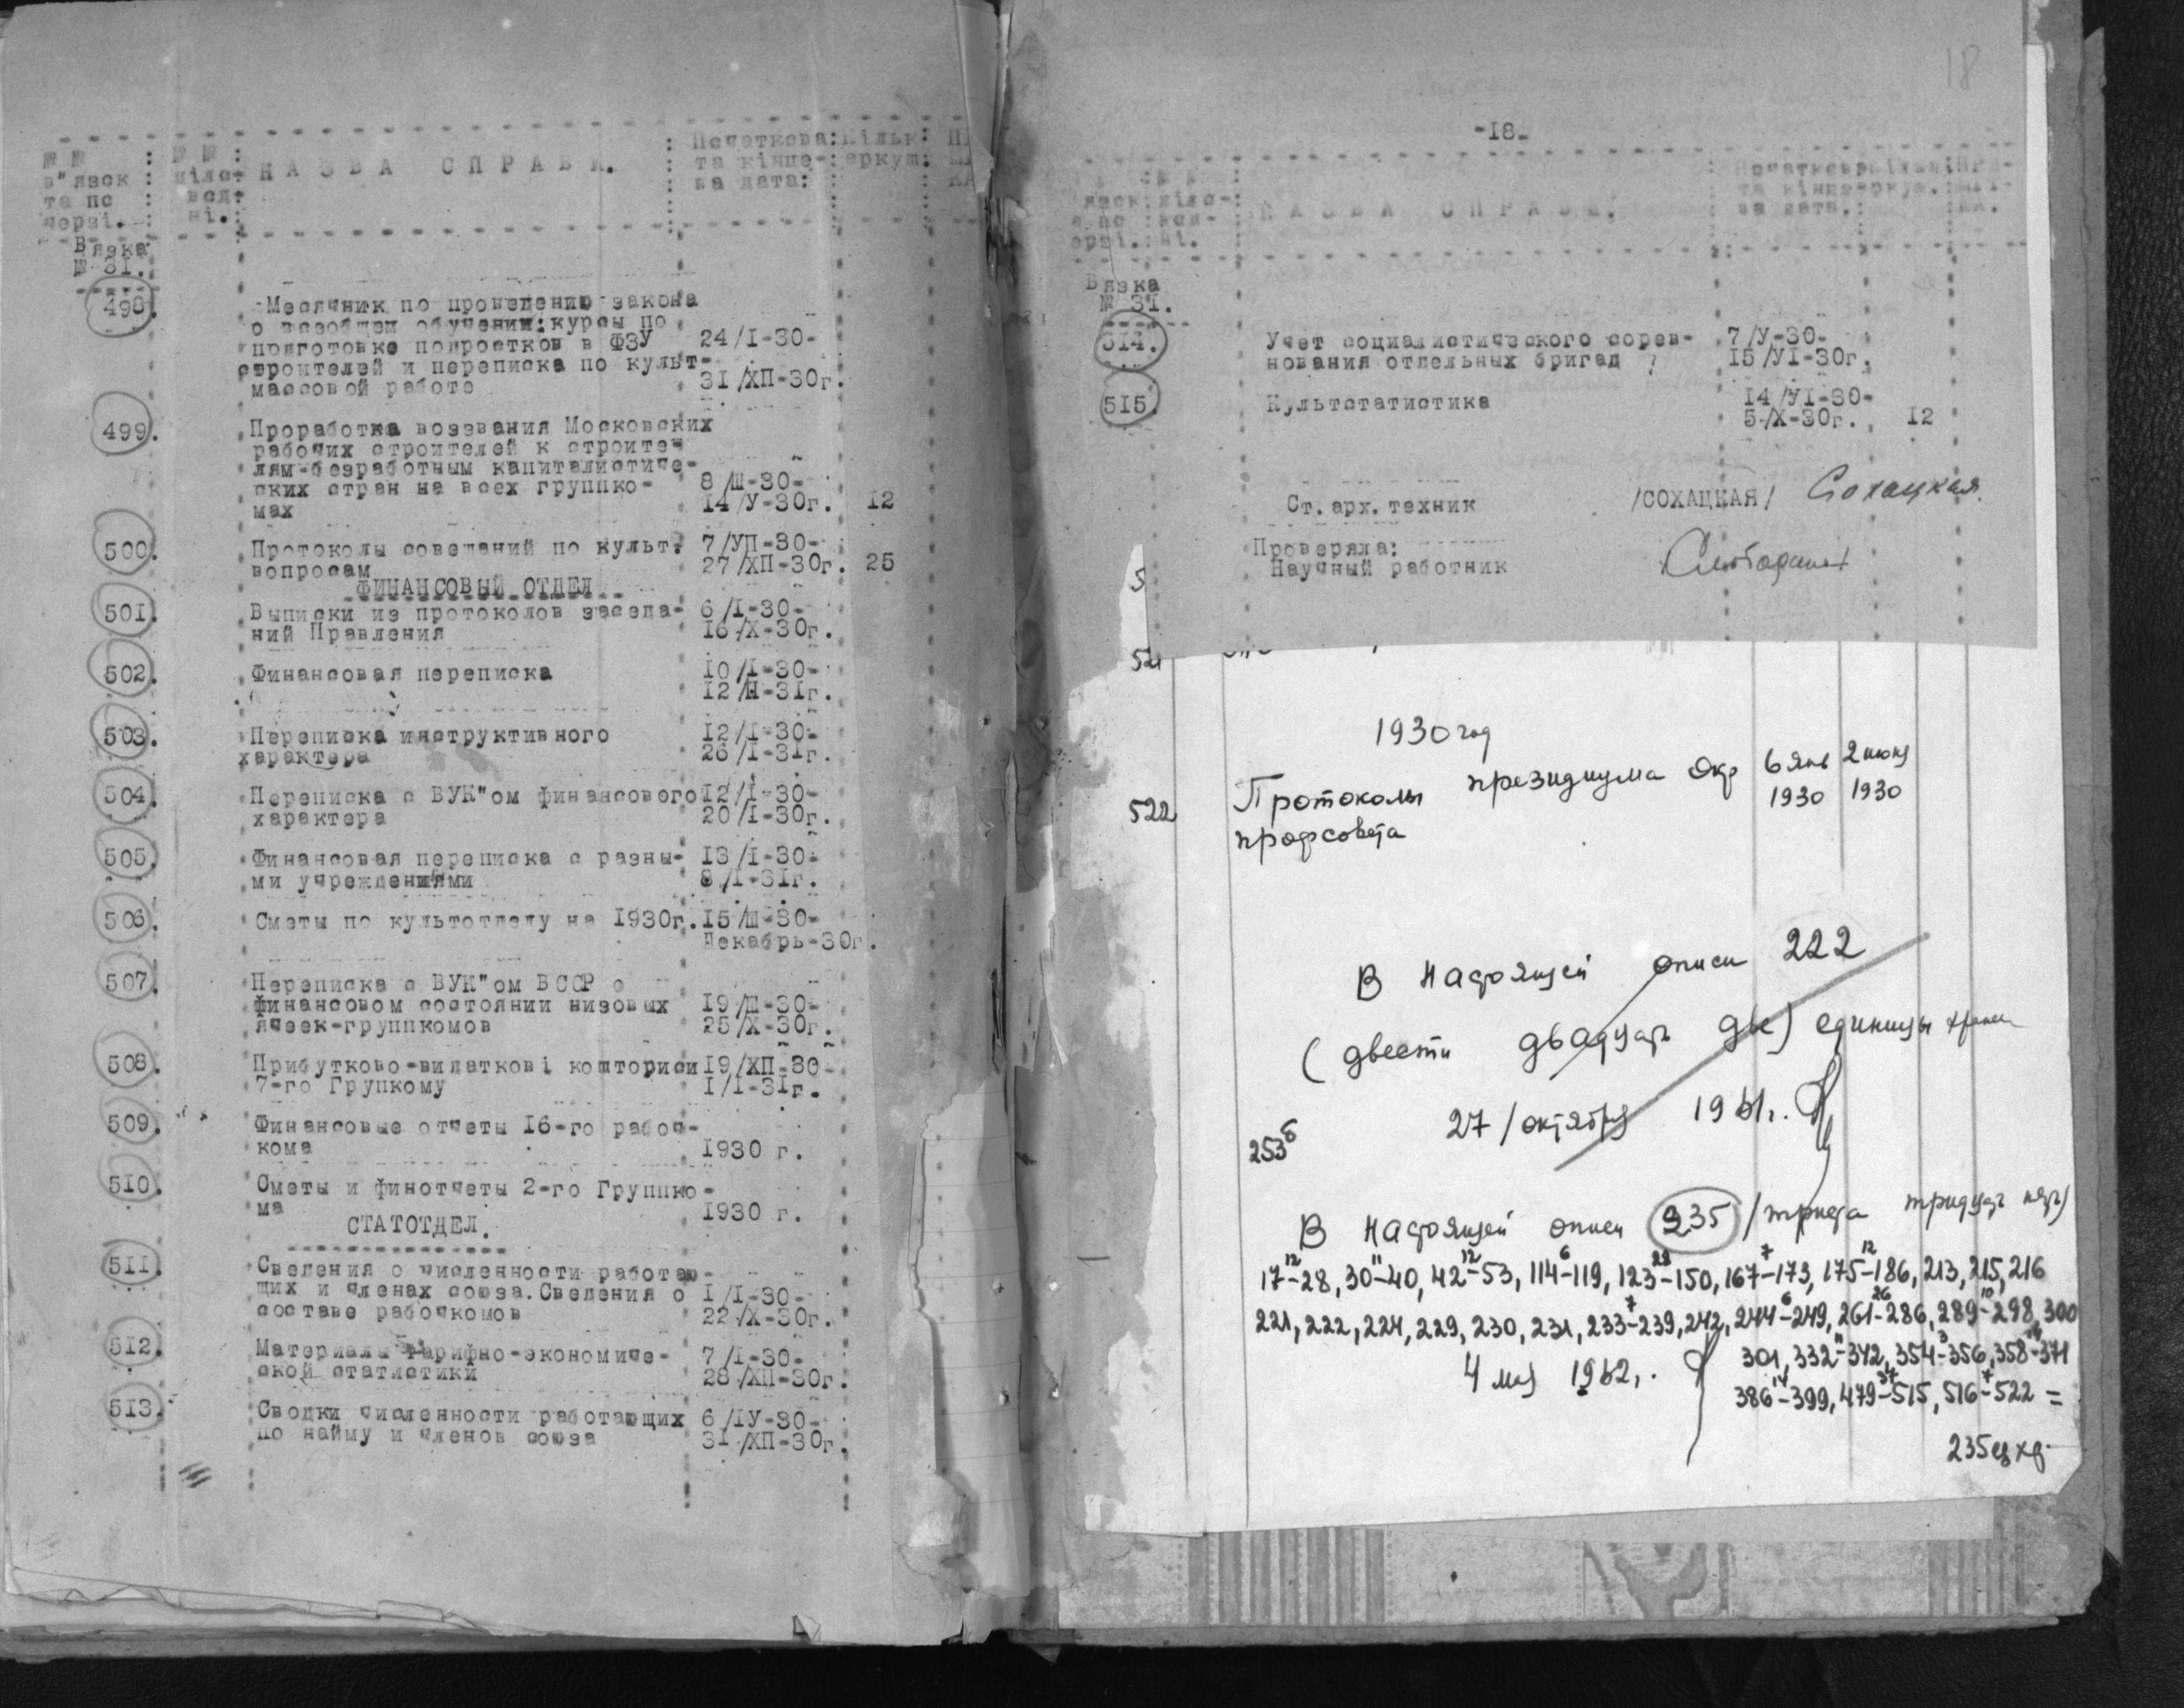 № №
в"язок
та по
черзі.
№ №
Н А З В А С П Р А В И.
Початкова
та кінце-
ва дата:
Кільк.
аркуш.
Вязка
№ 31.
498.
Месячник по проведению закона
о всеобщем обучении; курсы по
подготовке подростков в ФЗУ 24/I-30-
строителей и переписка по культ-
массовой работе 31/ХП-30г.
499. Проработка воззвания Московских
рабочих строителей к строите-
лям-безработным капиталистиче-
ских стран на всех группко- 8/Ш-30-
мах 14/У-30г. 12
500. Протоколы совещаний по культ. 7/УП-30-
вопросам 27/ХП-30г. 25
ФИНАНСОВЫЙ ОТДЕЛ
501. Выписки из протоколов заседа- 6/I-30-
ний Правления 16/Х-30г.
502. Финансовая переписка 10/I-30-
12/П-31г.
503. Переписка инструктивного 12/I-30-
характера 26/I-31г.
504. Переписка с ВУК"ом финансового 12/I-30-
характера 20/I-30г.
505. Финансовая переписка с разны- 13/I-30-
ми учреждениями 8/I-31г.
506. Сметы по культотделу на 1930г. 15/Ш-30-
Декабрь-30г.
507. Переписка с ВУК"ом ВССР о
финансовом состоянии низовых 19/Ш-30-
ячеек-группкомов 25/Х-30г.
508. Прибутково-видаткові кошториси 19/ХП-30-
7-го Групкому 1/I-31г.
509. Финансовые отчеты 16-го рабоч-
кома 1930 г.
510. Сметы и финотчеты 2-го Группко-
ма 1930 г.
СТАТОТДЕЛ.
511. Сведения о численности работаю-
щих и членах союза. Сведения о 1/I-30-
составе рабочкомов 22/Х-30г.
512. Материалы тарифно-экономиче- 7/I-30-
ской статистики 28/ХП-30г.
513. Сводки численности работающих 6/IУ-30-
по найму и членов союза 31/ХП-30г.
18
-18-
Н А З В А С П Р А В И.
Початкова
та кінце-
ва дата.
Вязка
№ 31.
514. Учет социалистического сорев- 7/У-30-
нования отдельных бригад 15/УI-30г.
515. Культстатистика 14/УI-30-
5/Х-30г. 12
Ст. арх. техник /СОХАЦКАЯ/ Сохацкая
Проверяла:
Научный работник
5
521
1930 год
522 Протоколы президиума Окр 6 янв 2 июня
профсовета 1930 1930
В настоящей описи 222
(двести двадцать две) единицы хранен
27/октября 1961г.
253б
В настоящей описи 235 /триста тридцать пять/
12 11 12 6 28 7 12
17-28, 30-40, 42-53, 114-119, 123-150, 167-173, 175-186, 213, 215, 216
7 6 26 10
221, 222, 224, 229, 230, 231, 233-239, 242, 244-249, 261-286, 289-298, 300
11 3 14
301, 332-342, 354-356, 358-371
4 мая 1962г.
14 37 7
386-399, 479-515, 516-522 =
235 ед хр.